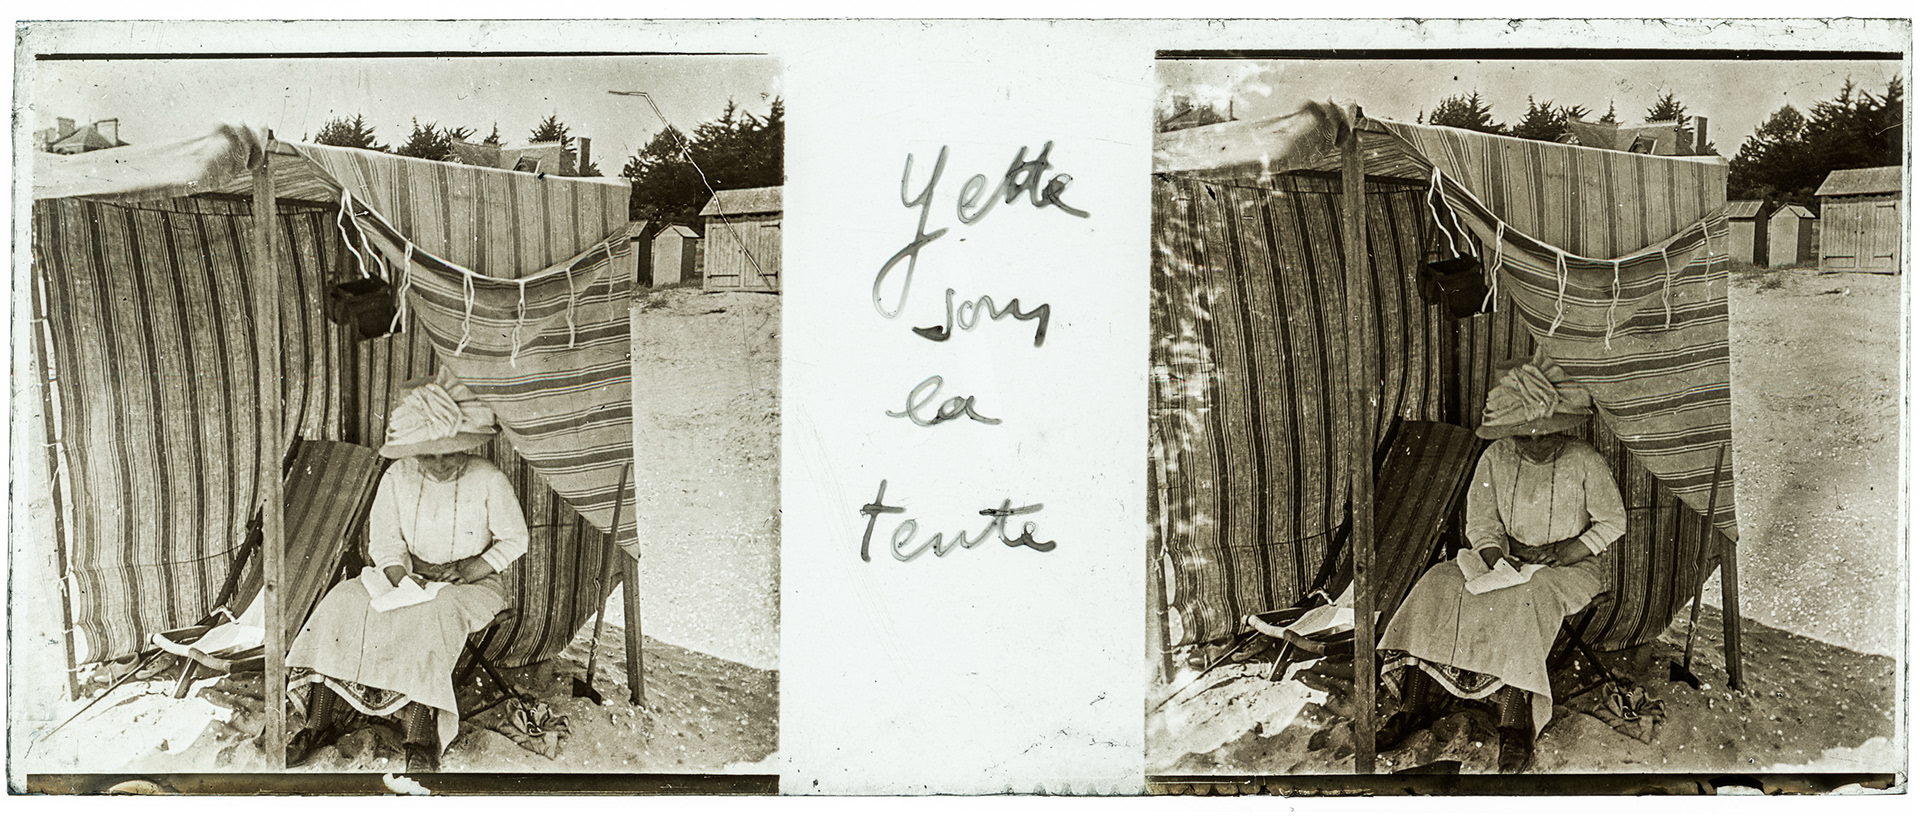 Yette
sous
la
tente